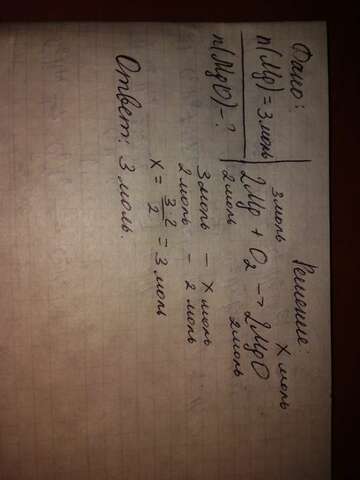 Дано:
n(Mg) = 3 моль
n(MgO) - ?
Решение:
3 моль x моль
2Mg + O₂ → 2MgO
2 моль 2 моль
3 моль - x моль
2 моль - 2 моль
x = 3·2/2 = 3 моль
Ответ: 3 моль.